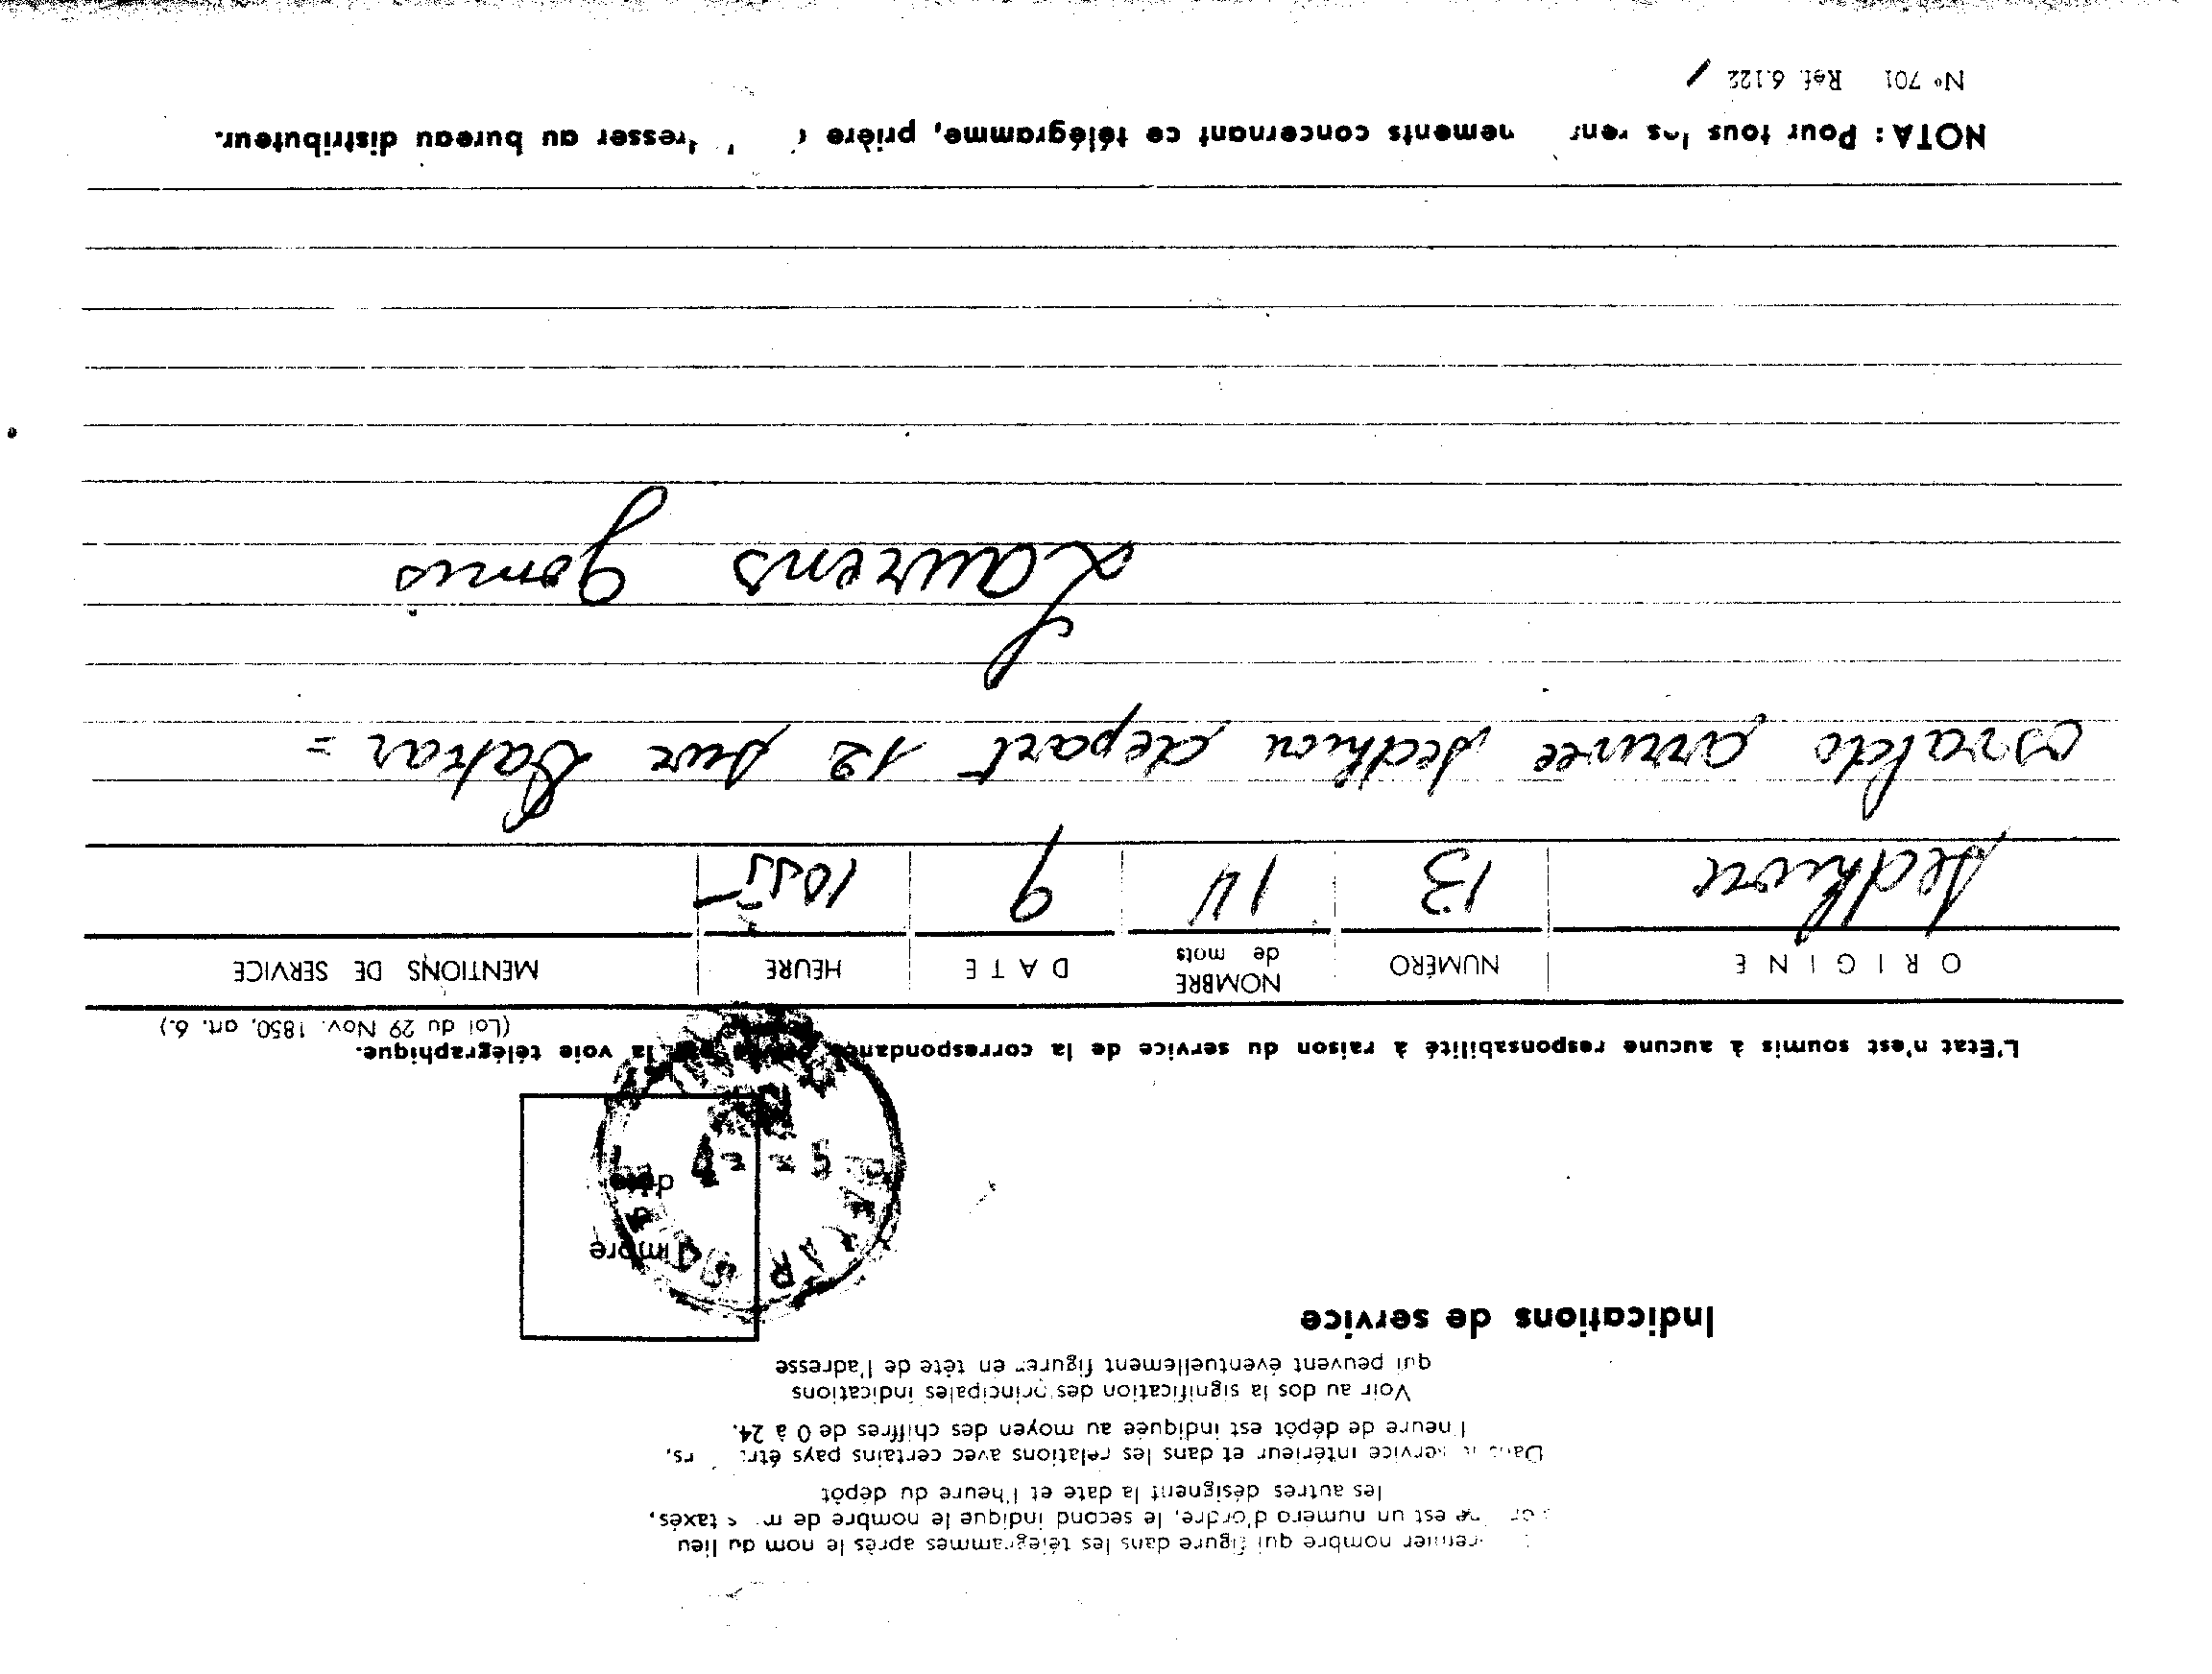 premier nombre qui figure dans les télégrammes après le nom du lieu
est un numéro d'ordre, le second indique le nombre de taxés,
les autres désignent la date et l'heure du dépôt
Dans service intérieur et dans les relations avec certains pays
l'heure de dépôt est indiquée au moyen des chiffres de 0 à 24.
Voir au dos la signification des principales indications
qui peuvent éventuellement figurer en tête de l'adresse
Indications de service
date
L'Etat n'est soumis à aucune responsabilité à raison du service de la correspondance la voie télégraphique.
(Loi du 29 Nov. 1850, art. 6.)
ORIGINE NUMÉRO NOMBRE de mots DATE HEURE MENTIONS DE SERVICE
Sedhiou 13 14 9 1055
osvaldo arrivée sedhiou depart 12 sur Dakar =
Laurens gomis
NOTA : Pour tous concernant ce télégramme, prière au bureau distributeur.
N° 701 Ref. 6.122